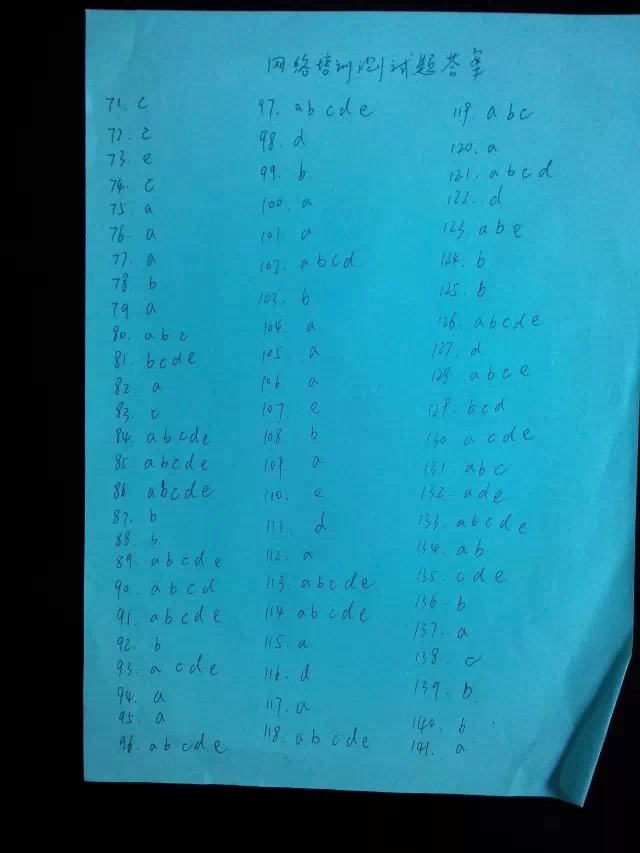 网络培训测试题答案
71. c
72. c
73. e
74. c
75. a
76. a
77. a
78. b
79. a
80. abc
81. bcde
82. a
83. c
84. abcde
85. abcde
86. abcde
87. b
88. b
89. abcde
90. abcd
91. abcde
92. b
93. acde
94. a
95. a
96. abcde
97. abcde
98. d
99. b
100. a
101. a
102. abcd
103. b
104. a
105. a
106. a
107. e
108. b
109. a
110. e
111. d
112. a
113. abcde
114. abcde
115. a
116. d
117. a
118. abcde
119. abc
120. a
121. abcd
122. d
123. abe
124. b
125. b
126. abcde
127. d
128. abce
129. bcd
130. acde
131. abc
132. ade
133. abcde
134. ab
135. cde
136. b
137. a
138. c
139. b
140. b
141. a